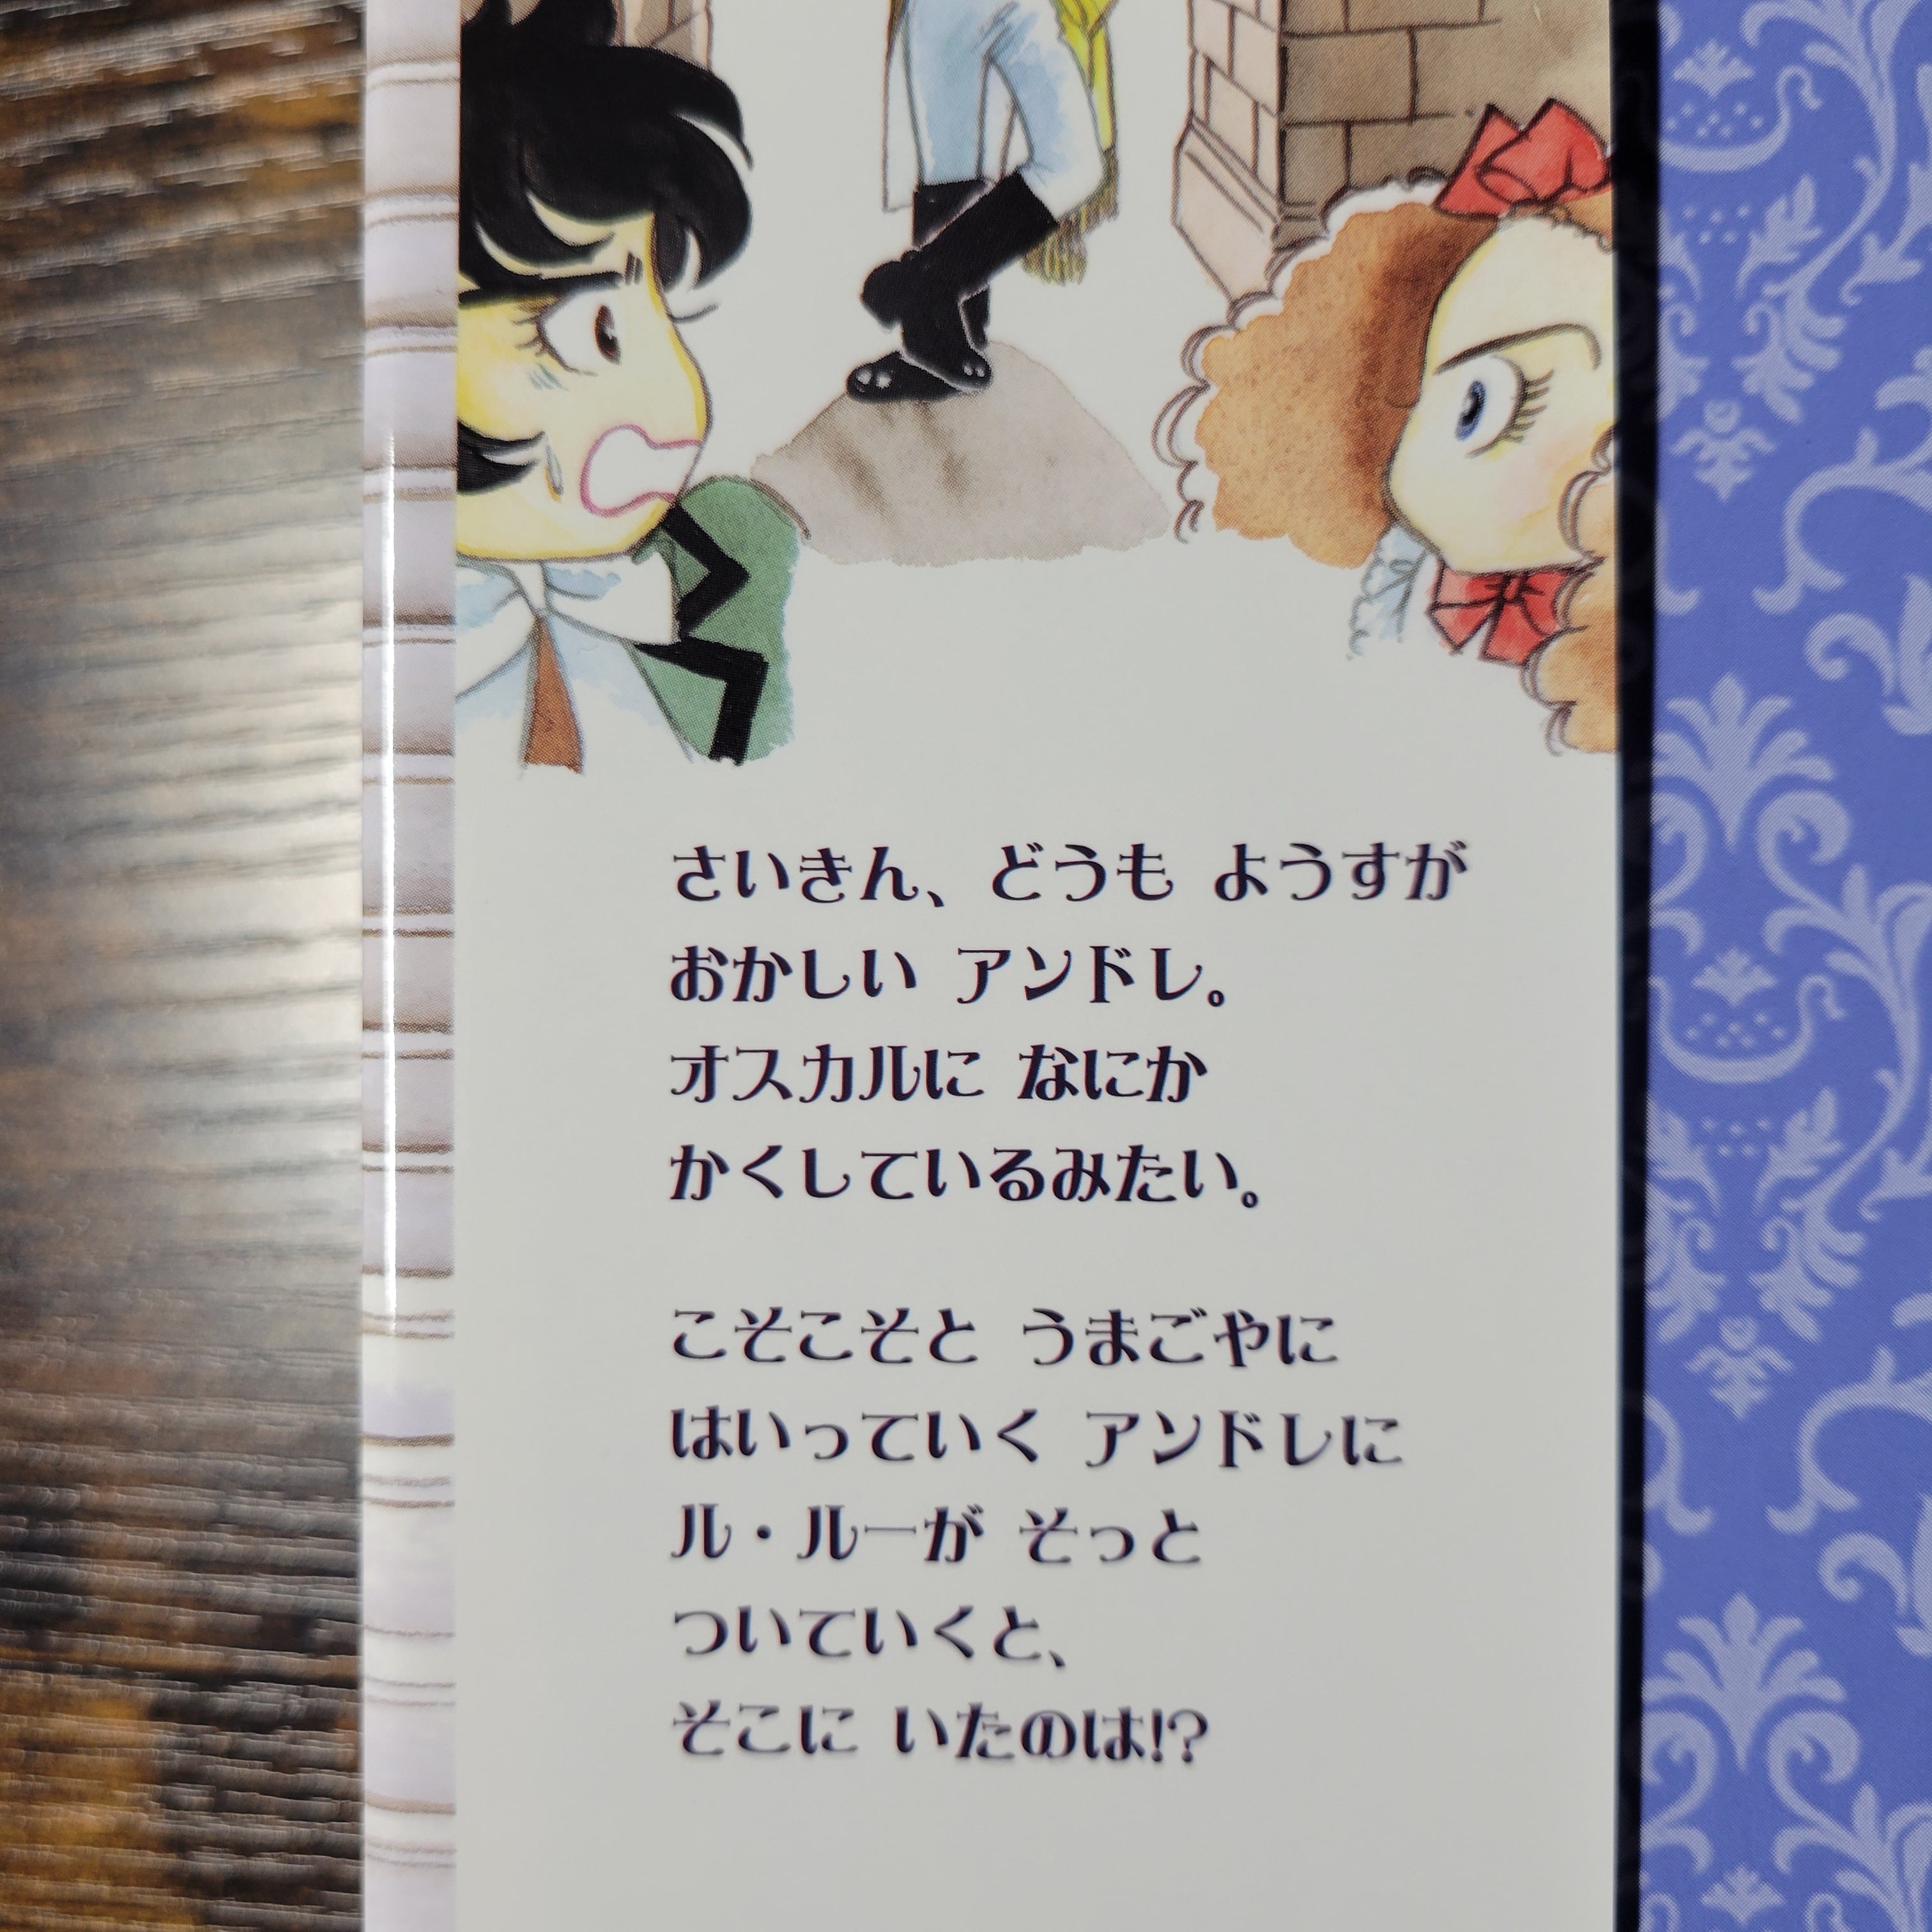 さいきん、どうも ようすが
おかしい アンドレ。
オスカルに なにか
かくしているみたい。
こそこそと うまごやに
はいっていく アンドレに
ル・ルーが そっと
ついていくと、
そこに いたのは!?